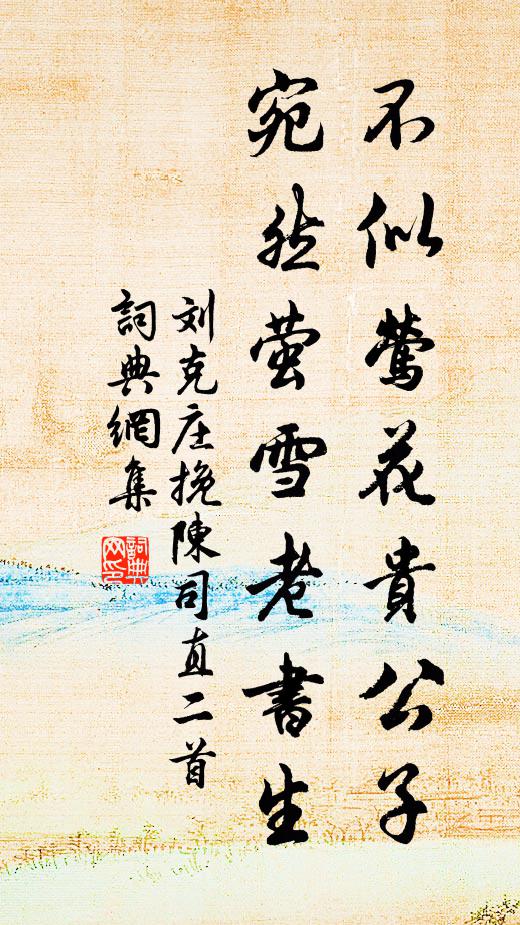 不似鶯花貴公子
宛然萤雪老書生
刘克庄挽陳司直二首
詞典網集
詞典网印